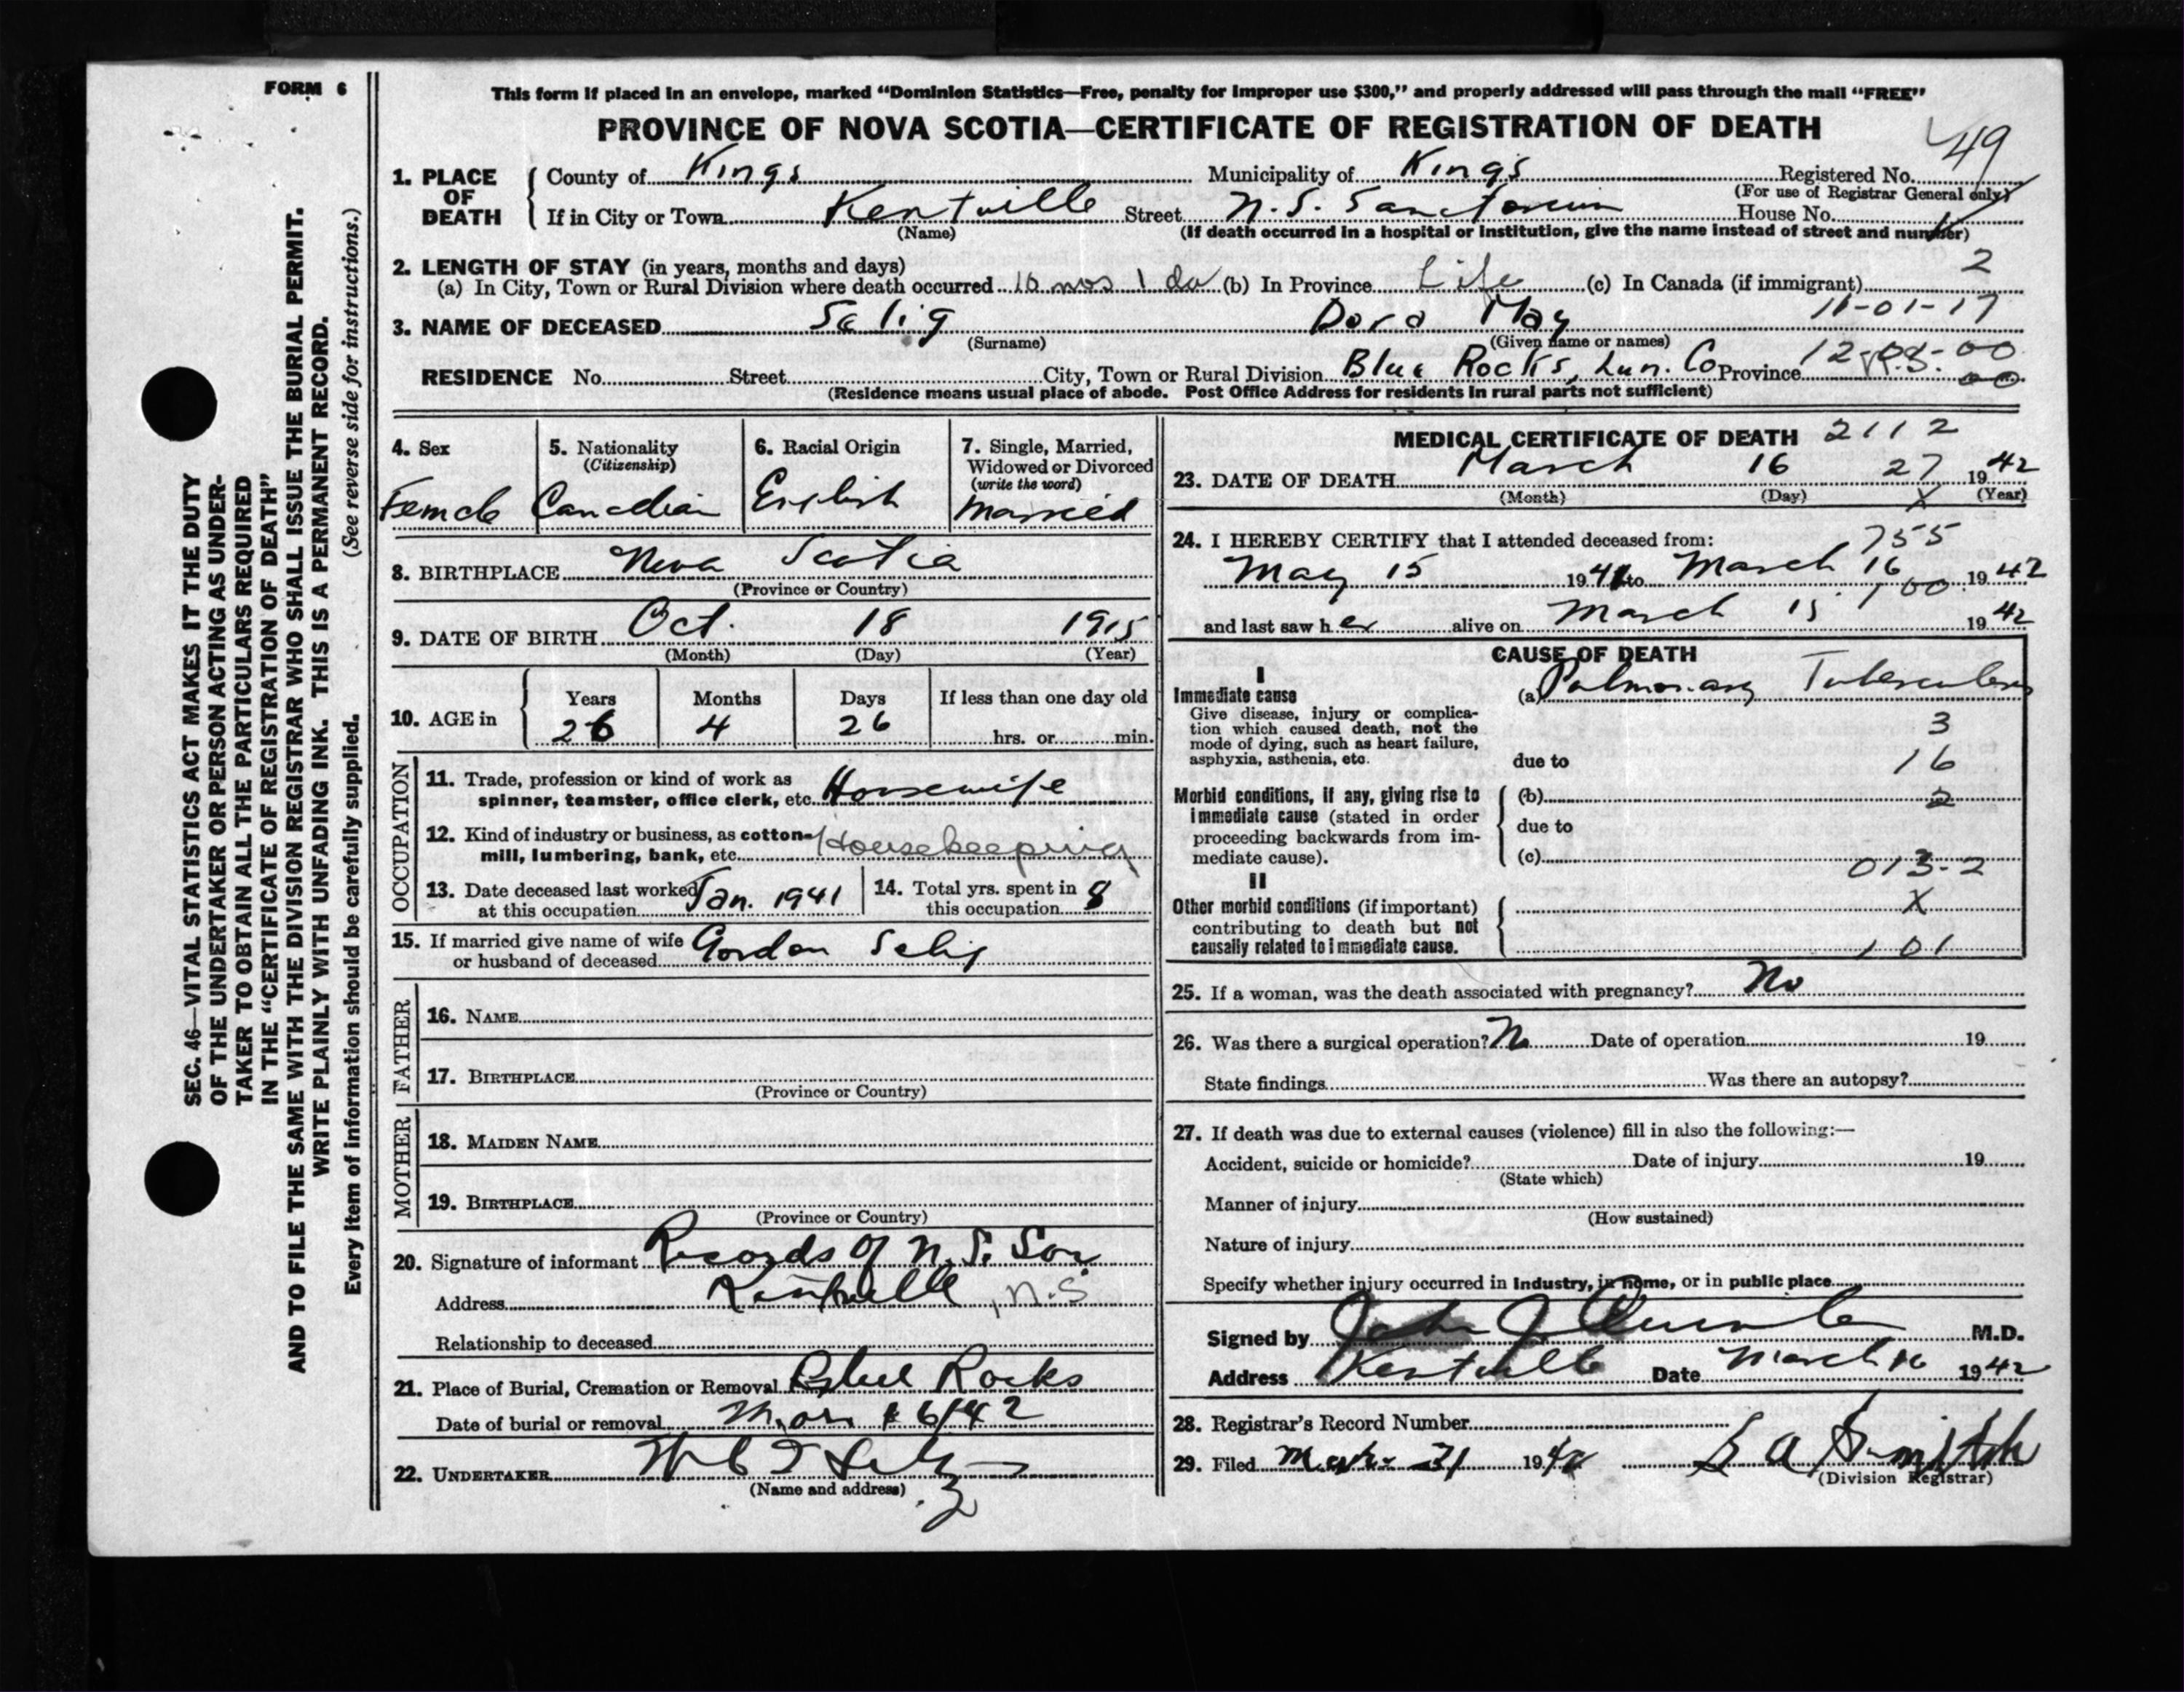 FORM 6
This form if placed in an envelope, marked “Dominion Statistics—Free, penalty for improper use $300,” and properly addressed will pass through the mail “FREE”
PROVINCE OF NOVA SCOTIA—CERTIFICATE OF REGISTRATION OF DEATH
49
1. PLACE OF DEATH
County of Kings Municipality of Kings Registered No.
(For use of Registrar General only)
If in City or Town Kentville Street N.S. Sanctorium House No.
(Name) (If death occurred in a hospital or institution, give the name instead of street and number)
2. LENGTH OF STAY (in years, months and days) 2
(a) In City, Town or Rural Division where death occurred 10 mos 1 da (b) In Province Life (c) In Canada (if immigrant)
3. NAME OF DECEASED Selig Dora May 11-01-17
(Surname) (Given name or names)
RESIDENCE No. Street City, Town or Rural Division Blue Rocks, Lun. Co Province N.S.
(Residence means usual place of abode. Post Office Address for residents in rural parts not sufficient)
SEC. 46—VITAL STATISTICS ACT MAKES IT THE DUTY
OF THE UNDERTAKER OR PERSON ACTING AS UNDER-
TAKER TO OBTAIN ALL THE PARTICULARS REQUIRED
IN THE “CERTIFICATE OF REGISTRATION OF DEATH”
AND TO FILE THE SAME WITH THE DIVISION REGISTRAR WHO SHALL ISSUE THE BURIAL PERMIT.
WRITE PLAINLY WITH UNFADING INK. THIS IS A PERMANENT RECORD.
Every item of information should be carefully supplied. (See reverse side for instructions.)
4. Sex
Female
5. Nationality
(Citizenship)
Canadian
6. Racial Origin
English
7. Single, Married,
Widowed or Divorced
(write the word)
Married
8. BIRTHPLACE Nova Scotia
(Province or Country)
9. DATE OF BIRTH Oct. 18 1915
(Month) (Day) (Year)
10. AGE in
Years Months Days If less than one day old
26 4 26 hrs. or min.
OCCUPATION
11. Trade, profession or kind of work as
spinner, teamster, office clerk, etc. Housewife
12. Kind of industry or business, as cotton-
mill, lumbering, bank, etc. Housekeeping
13. Date deceased last worked
at this occupation Jan. 1941
14. Total yrs. spent in
this occupation 8
15. If married give name of wife
or husband of deceased Gordon Selig
FATHER
16. NAME
17. BIRTHPLACE
(Province or Country)
MOTHER
18. MAIDEN NAME
19. BIRTHPLACE
(Province or Country)
20. Signature of informant Records of N.S. San
Address Kentville, N.S
Relationship to deceased
21. Place of Burial, Cremation or Removal Blue Rocks
Date of burial or removal Mar 16/42
22. UNDERTAKER
(Name and address)
MEDICAL CERTIFICATE OF DEATH 2112
23. DATE OF DEATH March 16 27 1942
(Month) (Day) (Year)
24. I HEREBY CERTIFY that I attended deceased from: 755
May 15 1941 to March 16 1942
and last saw her alive on March 15 1942
CAUSE OF DEATH
I
Immediate cause
Give disease, injury or complica-
tion which caused death, not the
mode of dying, such as heart failure,
asphyxia, asthenia, etc.
(a) Pulmonary Tuberculosis
3
due to 16
Morbid conditions, if any, giving rise to
immediate cause (stated in order
proceeding backwards from im-
mediate cause).
(b) 2
due to
(c)
013-2
II
Other morbid conditions (if important)
contributing to death but not
causally related to immediate cause.
X
101
25. If a woman, was the death associated with pregnancy? No
26. Was there a surgical operation? No Date of operation 19
State findings Was there an autopsy?
27. If death was due to external causes (violence) fill in also the following:—
Accident, suicide or homicide? Date of injury 19
(State which)
Manner of injury
(How sustained)
Nature of injury
Specify whether injury occurred in industry, in home, or in public place
Signed by John J. M.D.
Address Kentville Date March 16 1942
28. Registrar's Record Number
29. Filed 31 1942 Smith
(Division Registrar)